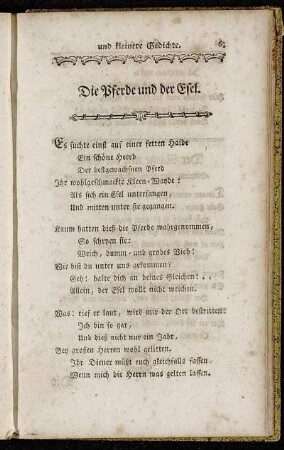 und kleinere Gedichte.
Die Pferde und der Esel.
Es suchte einst auf einer fetten Haide
Ein schöne Heerd
Der bestgewachsnen Pferd
Ihr wohlgeschmackte Kleen-Wayde:
Als sich ein Esel unterfangen,
Und mitten unter sie gegangen.
Kaum hatten dieß die Pferde wahrgenommen,
So schryen sie:
Weich, dumm- und grobes Vieh!
Wie bist du unter uns gekommen?
Geh! halte dich an deines Gleichen! . .
Allein, der Esel wollt nicht weichen.
Was: rief er laut, wird mir der Ort bestritten?
Ich bin so gar,
Und dieß nicht nur ein Jahr,
Bey großen Herren wohl gelitten.
Ihr Diener müßt euch gleichfalls fassen,
Wenn mich die Herrn was gelten lassen.